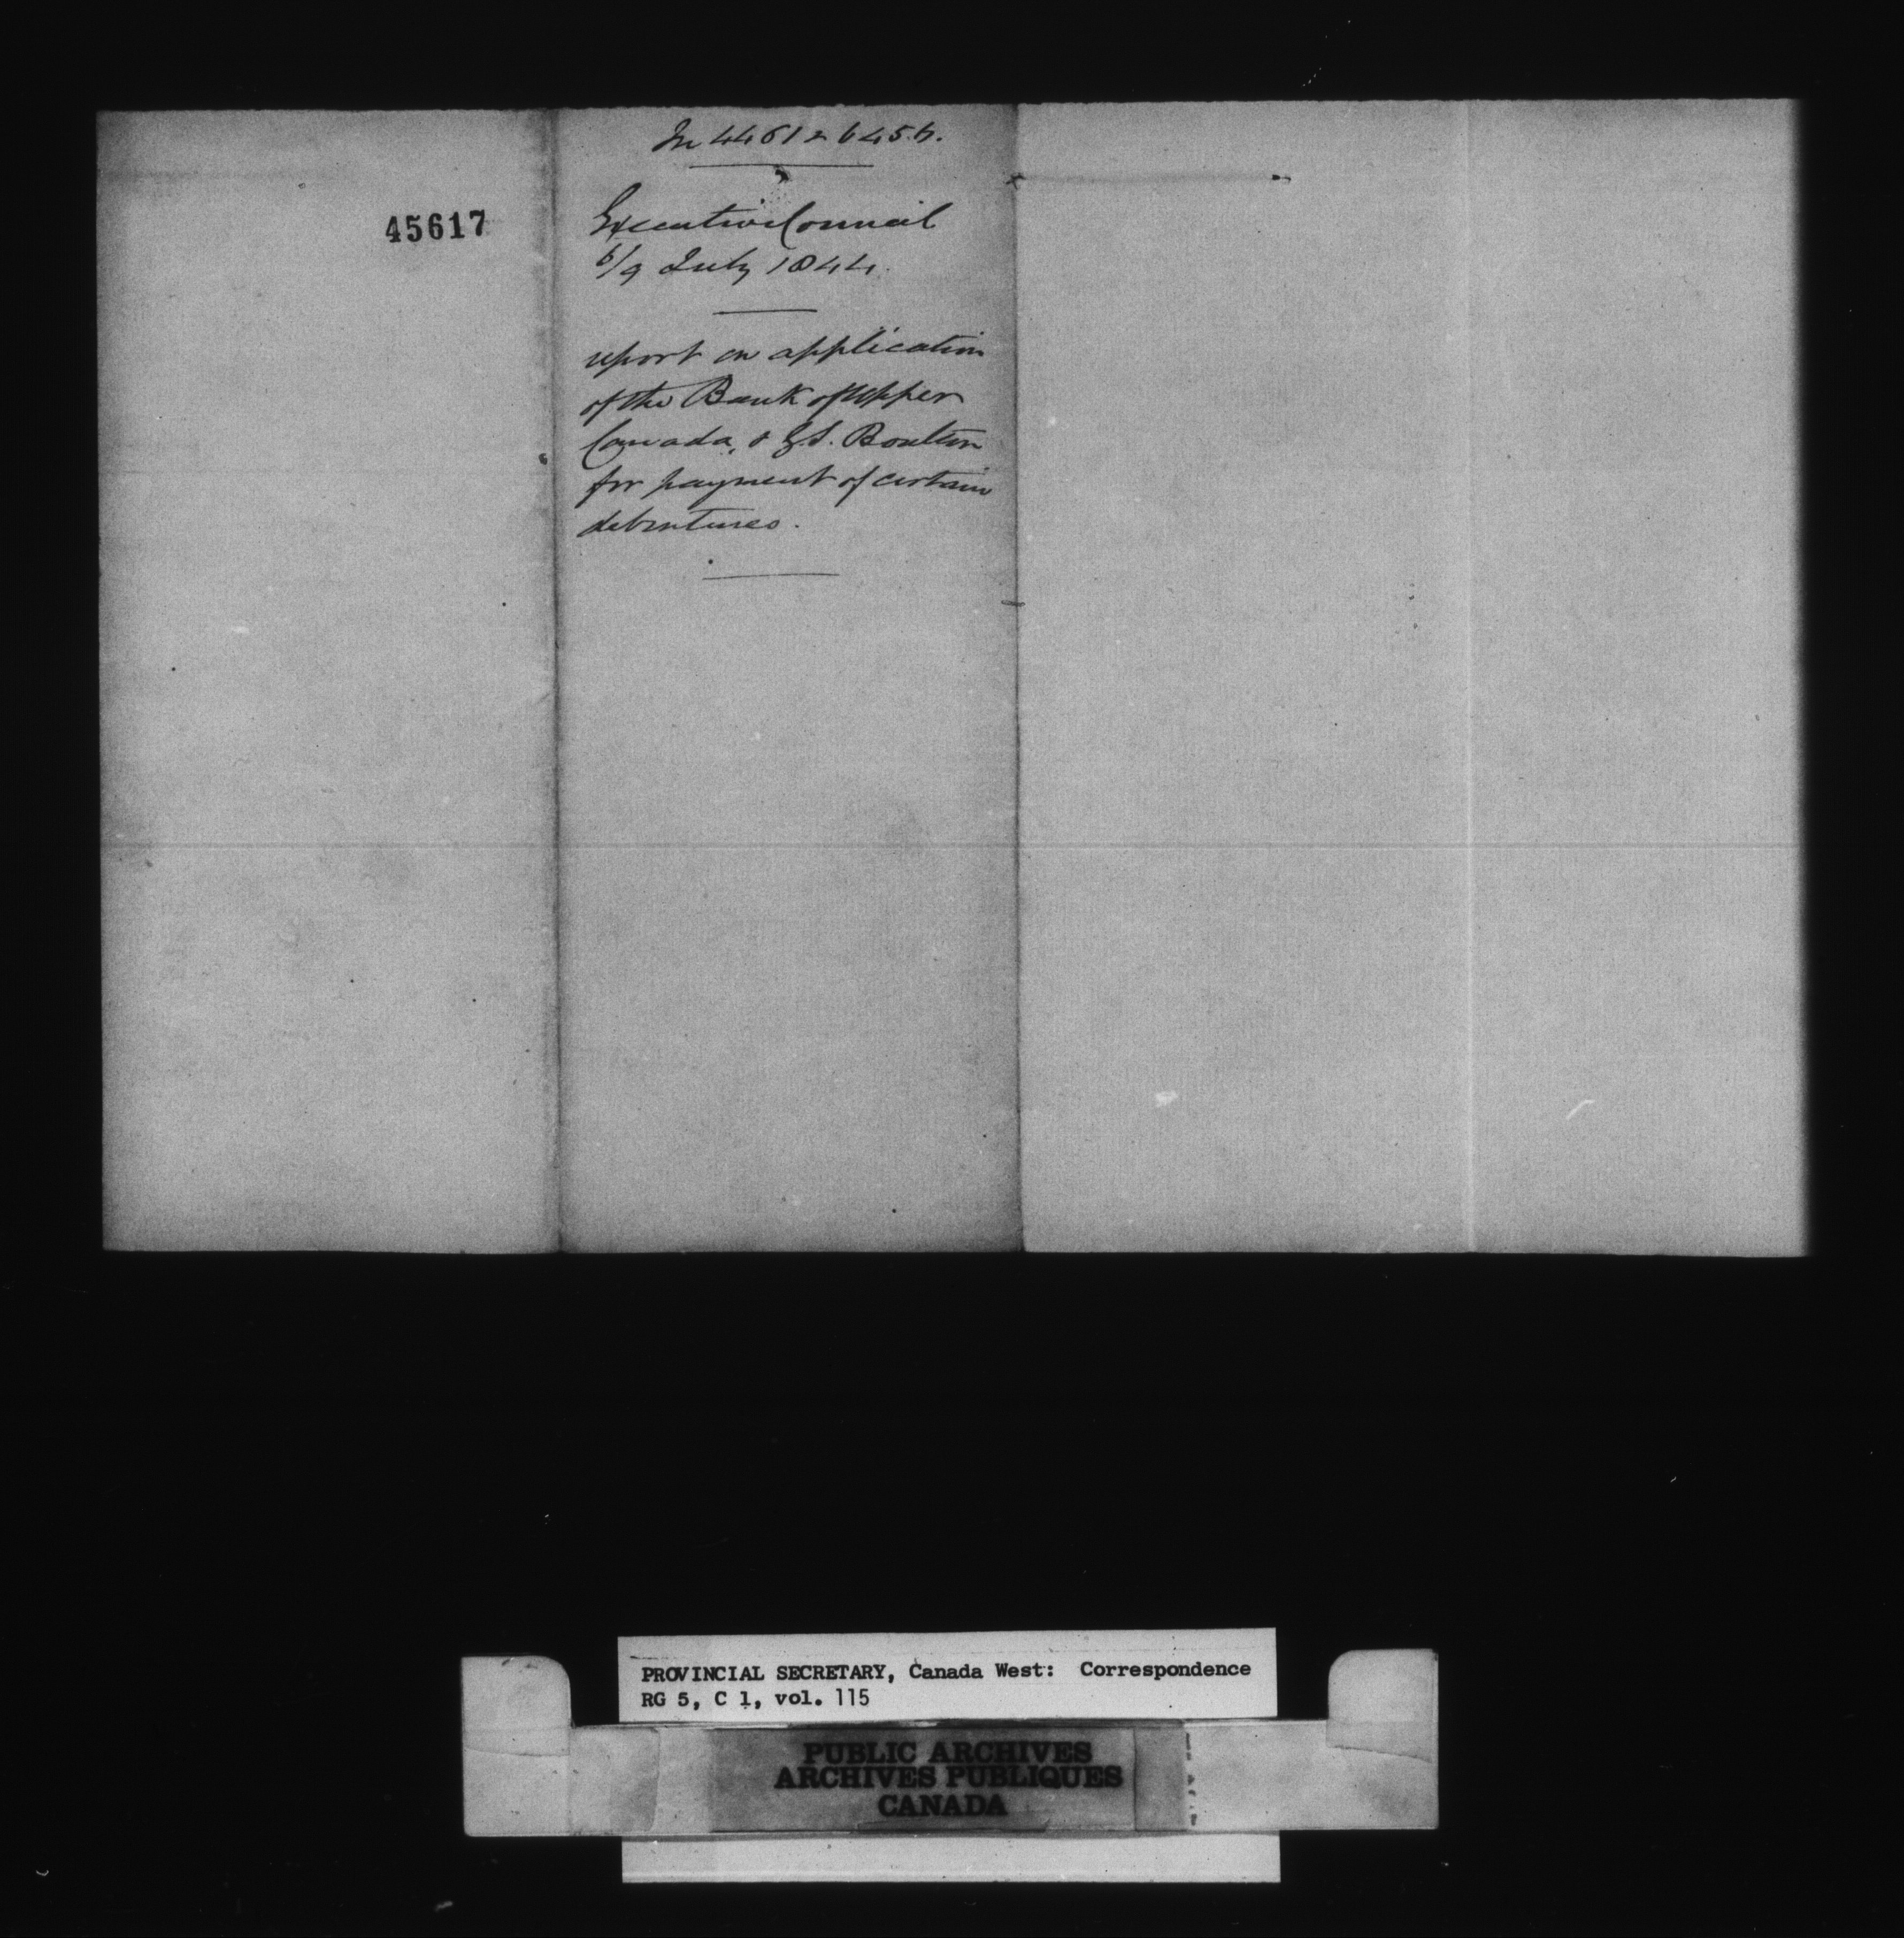 45617
In 4461 & 6456.
Executive Council
6/9 July 1844.
report on application
of the Bank of Upper
Canada, & G.S. Boulton
for payment of certain
debentures.
PROVINCIAL SECRETARY, Canada West: Correspondence
RG 5, C 1, vol. 115
PUBLIC ARCHIVES
ARCHIVES PUBLIQUES
CANADA